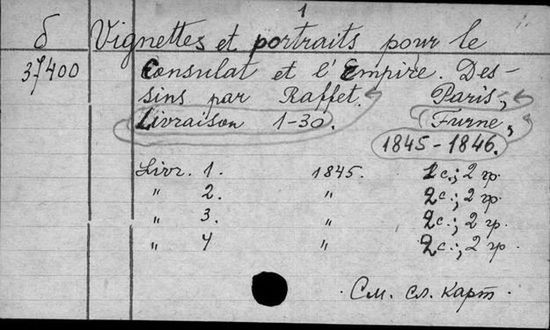 1
б Vignettes et portraits pour le
37400 Consulat et l'Empire. Des-
sins par Raffet. Paris,
Livraison 1-30. Furne,
1845-1846.
Livr. 1. 1845. 2 с.; 2 гр.
" 2. " 2 с.; 2 гр.
" 3. " 2 с.; 2 гр.
" 4 " 2 с.; 2 гр.
См. сл. карт.